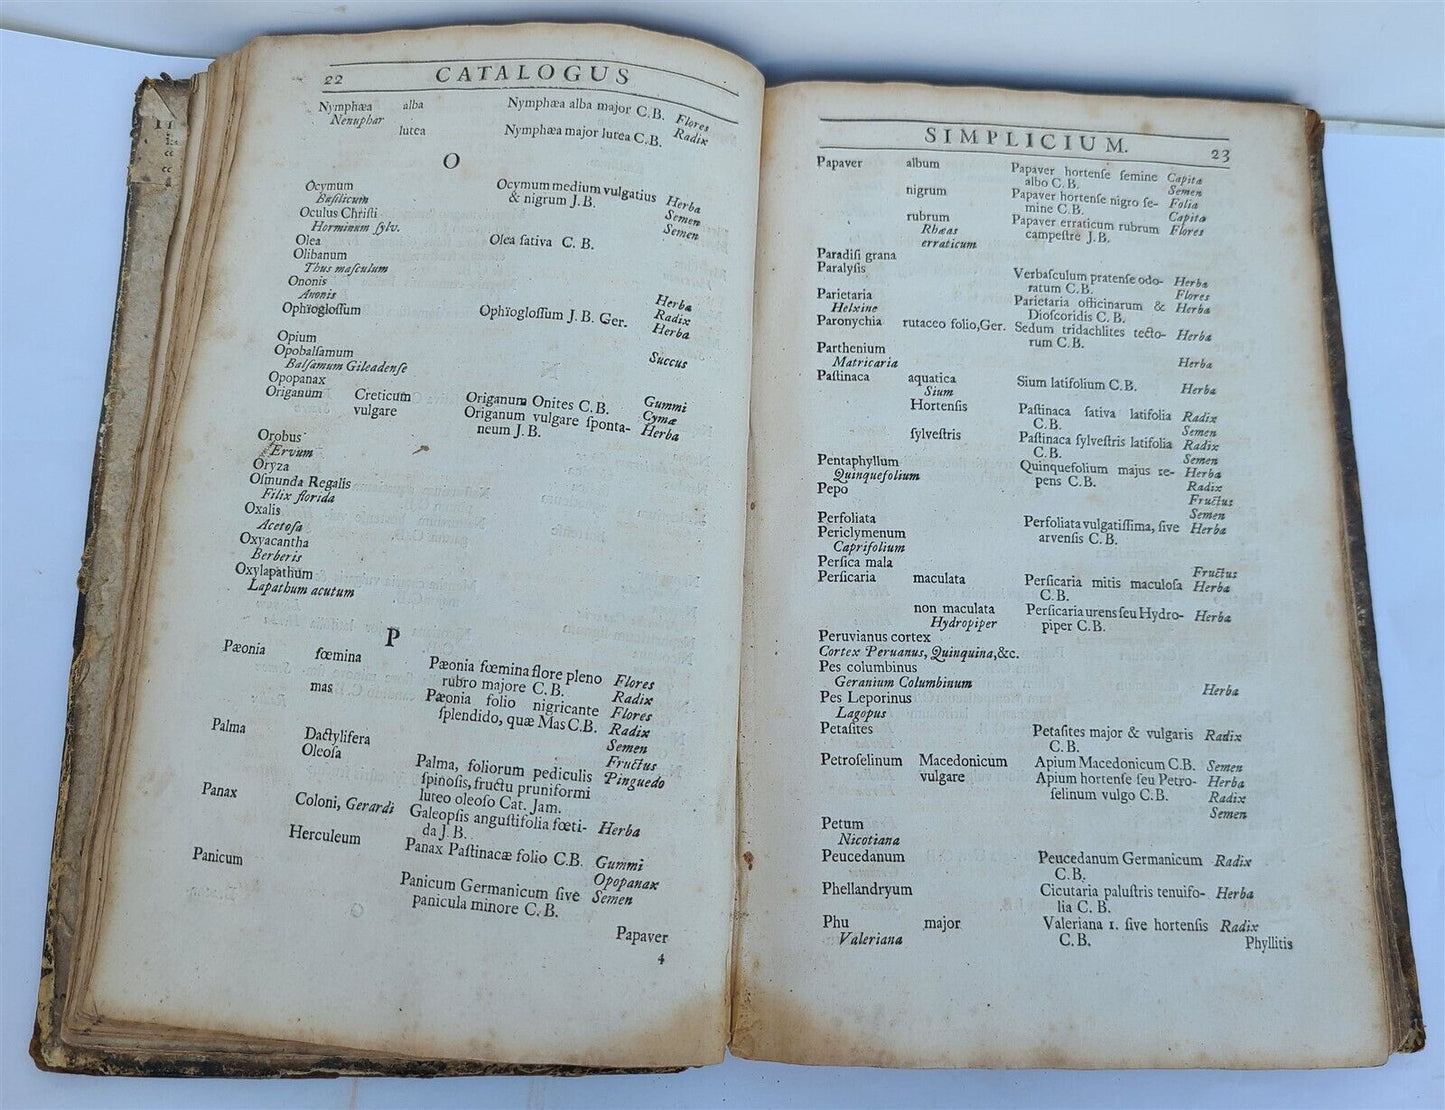 22 CATALOGUS
Nymphæa alba Nymphæa alba major C.B. Flores
Nenuphar Radix
lutea Nymphæa major lutea C.B.
O
Ocymum Ocymum medium vulgatius Herba
Baſilicum & nigrum J.B. Semen
Oculus Chriſti Semen
Horminum ſylv.
Olea Olea ſativa C.B.
Olibanum
Thus maſculum
Ononis Herba
Anonis Radix
Ophïogloſſum Ophïogloſſum J.B. Ger. Herba
Opium Succus
Opobalſamum
Balſamum Gileadenſe
Opopanax Gummi
Origanum Creticum Origanum Onites C.B. Cymæ
vulgare Origanum vulgare ſponta- Herba
neum J.B.
Orobus
Ervum
Oryza
Oſmunda Regalis
Filix florida
Oxalis
Acetoſa
Oxyacantha
Berberis
Oxylapathum
Lapathum acutum
P
Pæonia fœmina Pæonia fœmina flore pleno Flores
rubro majore C.B. Radix
mas Pæonia folio nigricante Flores
ſplendido, quæ Mas C.B. Radix
Semen
Palma Dactylifera Fructus
Oleoſa Palma, foliorum pediculis Pinguedo
ſpinoſis, fructu pruniformi
luteo oleoſo Cat. Jam.
Panax Coloni, Gerardi Galeopſis anguſtifolia fœti- Herba
da J.B.
Herculeum Panax Paſtinacæ folio C.B. Gummi
Opopanax
Panicum Panicum Germanicum ſive Semen
panicula minore C.B.
Papaver
4
SIMPLICIUM. 23
Papaver album Papaver hortenſe ſemine Capita
albo C.B. Semen
nigrum Papaver hortenſe nigro ſe- Folia
mine C.B. Capita
rubrum Papaver erraticum rubrum Flores
Rhæas campeſtre J.B.
erraticum
Paradiſi grana
Paralyſis Verbaſculum pratenſe odo- Herba
ratum C.B. Flores
Parietaria Parietaria officinarum & Herba
Helxine Dioſcoridis C.B.
Paronychia rutaceo folio, Ger. Sedum tridachlites tecto- Herba
rum C.B.
Parthenium Herba
Matricaria
Paſtinaca aquatica Sium latifolium C.B. Herba
Sium
Hortenſis Paſtinaca ſativa latifolia Radix
C.B. Semen
ſylveſtris Paſtinaca ſylveſtris latifolia Radix
C.B. Semen
Pentaphyllum Quinquefolium majus re- Herba
Quinquefolium pens C.B. Radix
Pepo Fructus
Semen
Perfoliata Perfoliata vulgatiſſima, ſive Herba
Periclymenum arvenſis C.B.
Caprifolium
Perſica mala Fructus
Perſicaria maculata Perſicaria mitis maculoſa Herba
C.B.
non maculata Perſicaria urens ſeu Hydro- Herba
Hydropiper piper C.B.
Peruvianus cortex
Cortex Peruanus, Quinquina, &c.
Pes columbinus
Geranium Columbinum Herba
Pes Leporinus
Lagopus
Petaſites Petaſites major & vulgaris Radix
C.B.
Petroſelinum Macedonicum Apium Macedonicum C.B. Semen
vulgare Apium hortenſe ſeu Petro- Herba
ſelinum vulgo C.B. Radix
Semen
Petum
Nicotiana
Peucedanum Peucedanum Germanicum Radix
C.B.
Phellandryum Cicutaria paluſtris tenuifo- Herba
lia C.B.
Phu major Valeriana 1. ſive hortenſis Radix
Valeriana C.B.
Phyllitis